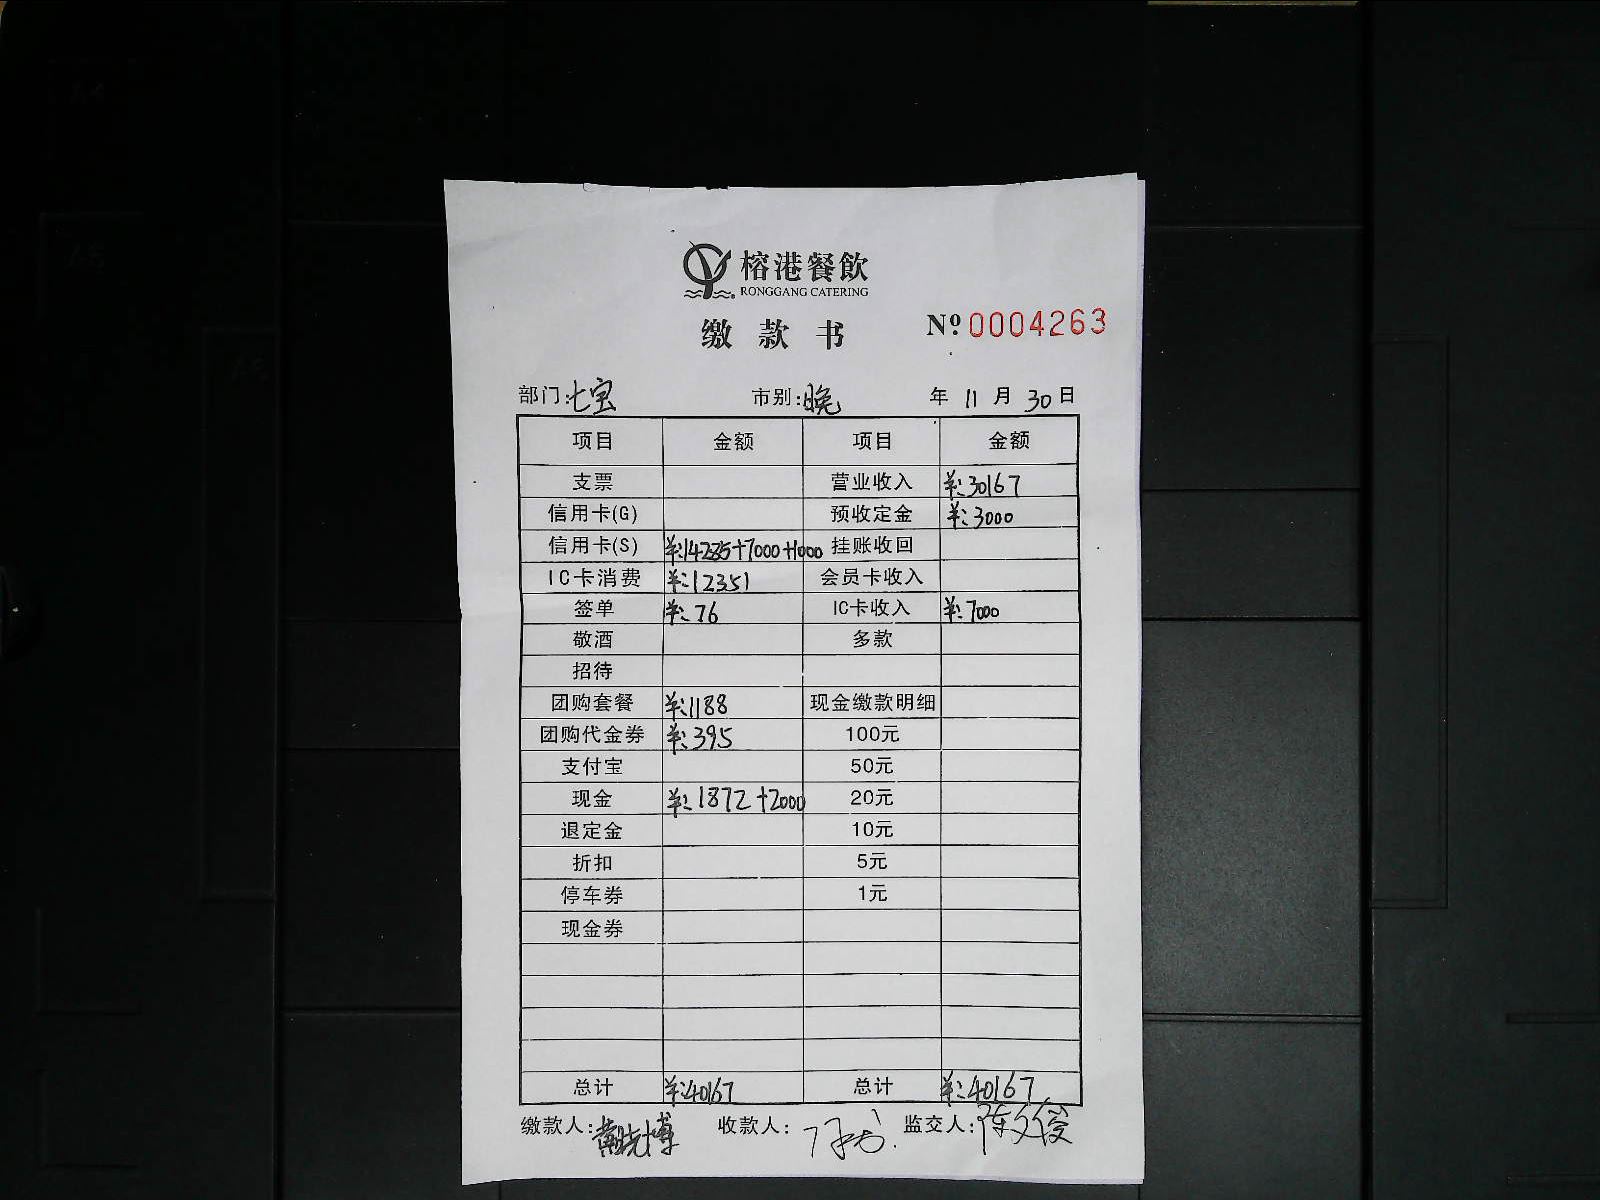 榕港餐飲
RONGGANG CATERING
缴款书 Nº 0004263
部门:七宝 市别:晚 年 11 月 30 日
项目 金额 项目 金额
支票 营业收入 ¥:30167
信用卡(G) 预收定金 ¥:3000
信用卡(S) ¥:14285+7000+1000 挂账收回
IC卡消费 ¥:12351 会员卡收入
签单 ¥:76 IC卡收入 ¥:7000
敬酒 多款
招待
团购套餐 ¥:1188 现金缴款明细
团购代金券 ¥:395 100元
支付宝 50元
现金 ¥:1872+2000 20元
退定金 10元
折扣 5元
停车券 1元
现金券
总计 ¥:40167 总计 ¥:40167
缴款人:黄晓博 收款人: 监交人:陈文俊